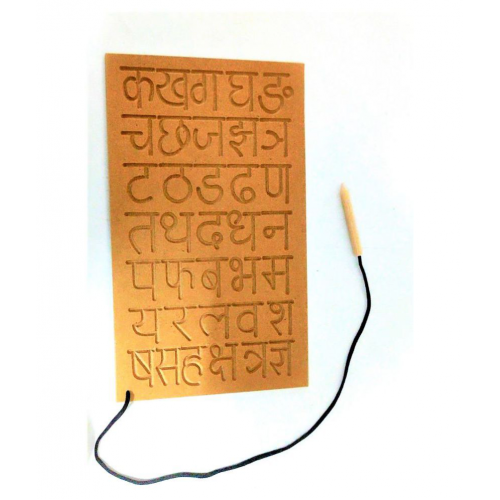 क ख ग घ ङ
च छ ज झ त्र
ट ठ ड ढ ण
त थ द ध न
प फ ब भ म
य र ल व श
ष स ह क्ष त्र ज्ञ